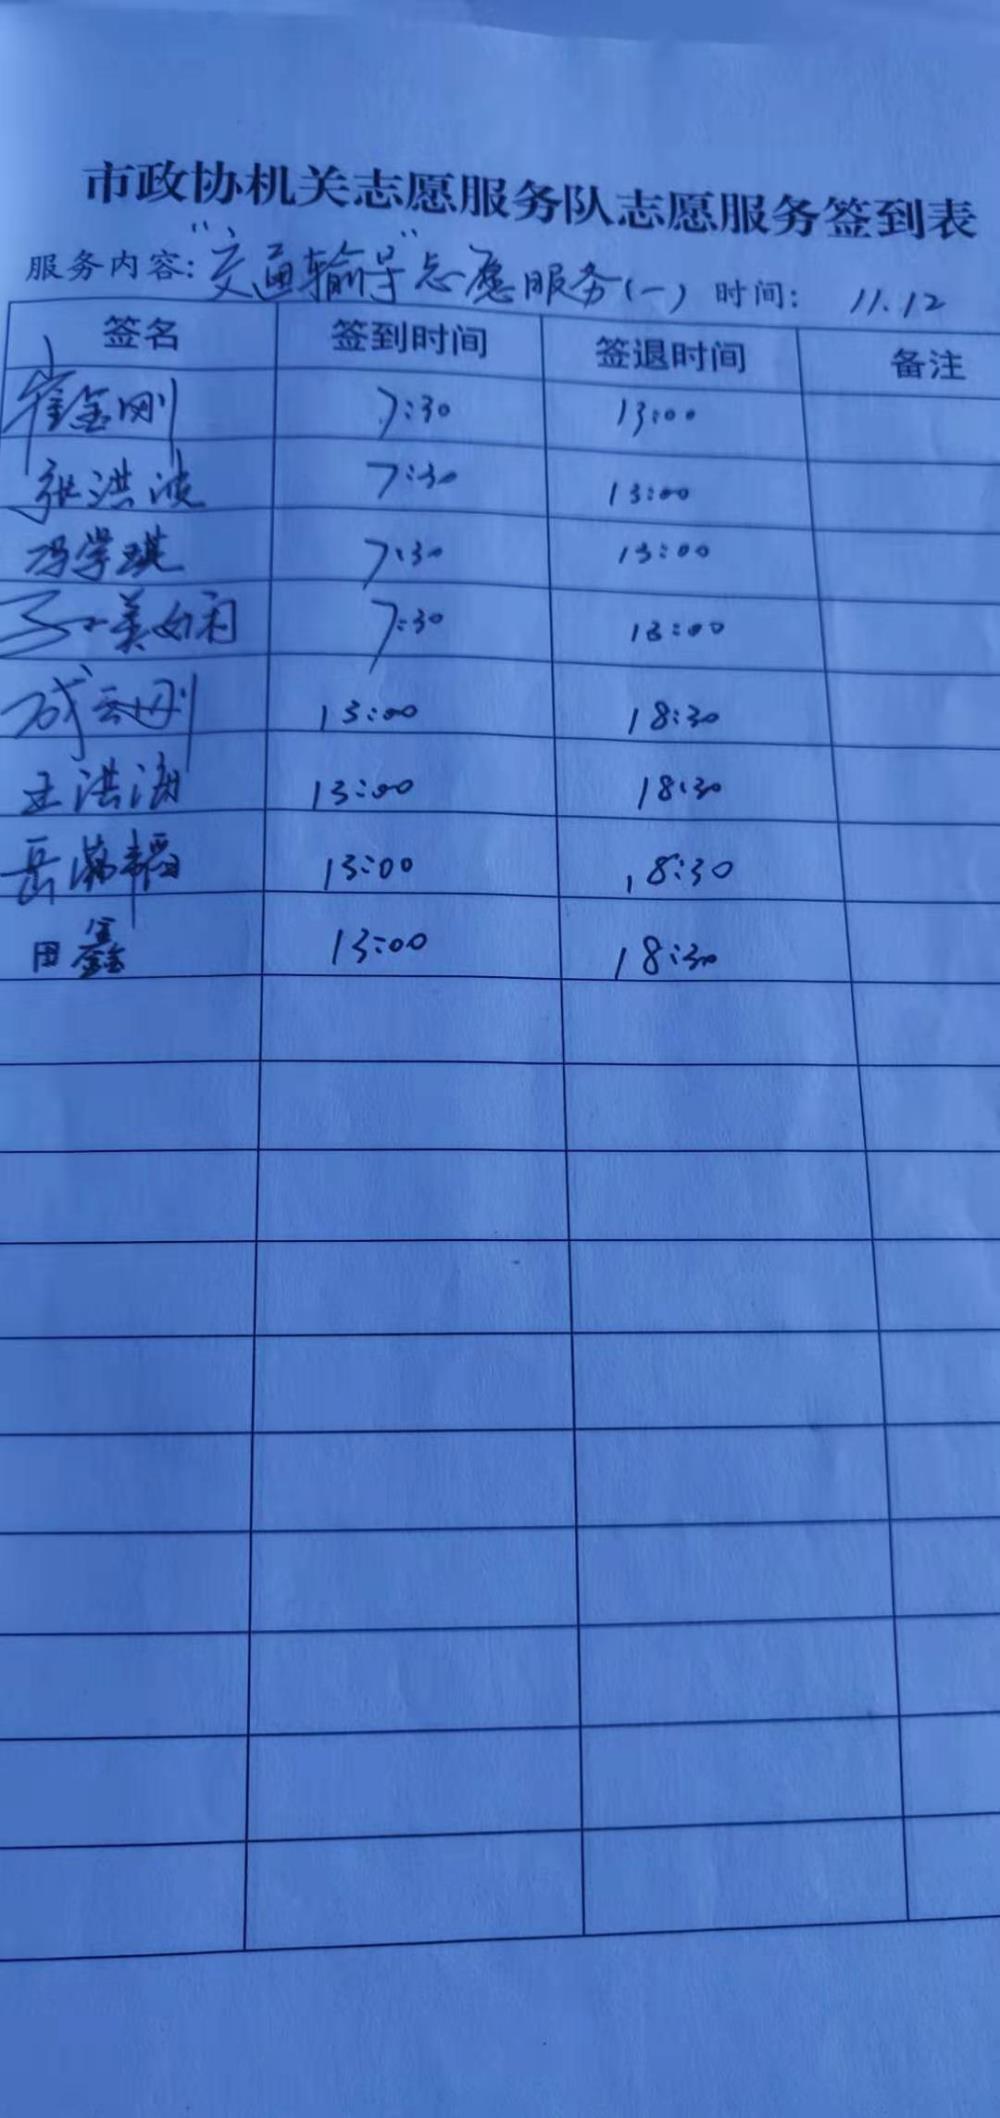 市政协机关志愿服务队志愿服务签到表
服务内容:“交通输导”志愿服务(一) 时间: 11.12
签名 签到时间 签退时间 备注
崔金刚 7:30 13:00
张洪波 7:30 13:00
冯学琪 7:30 13:00
美娟 7:30 13:00
成云刚 13:00 18:30
王洪海 13:00 18:30
岳 韬 13:00 18:30
田鑫 13:00 18:30